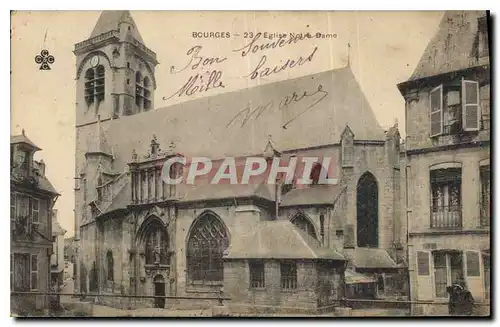 BOURGES - 23 - Eglise Notre Dame
Bon Souvenir
Mille baisers
Marie
CPARAMA